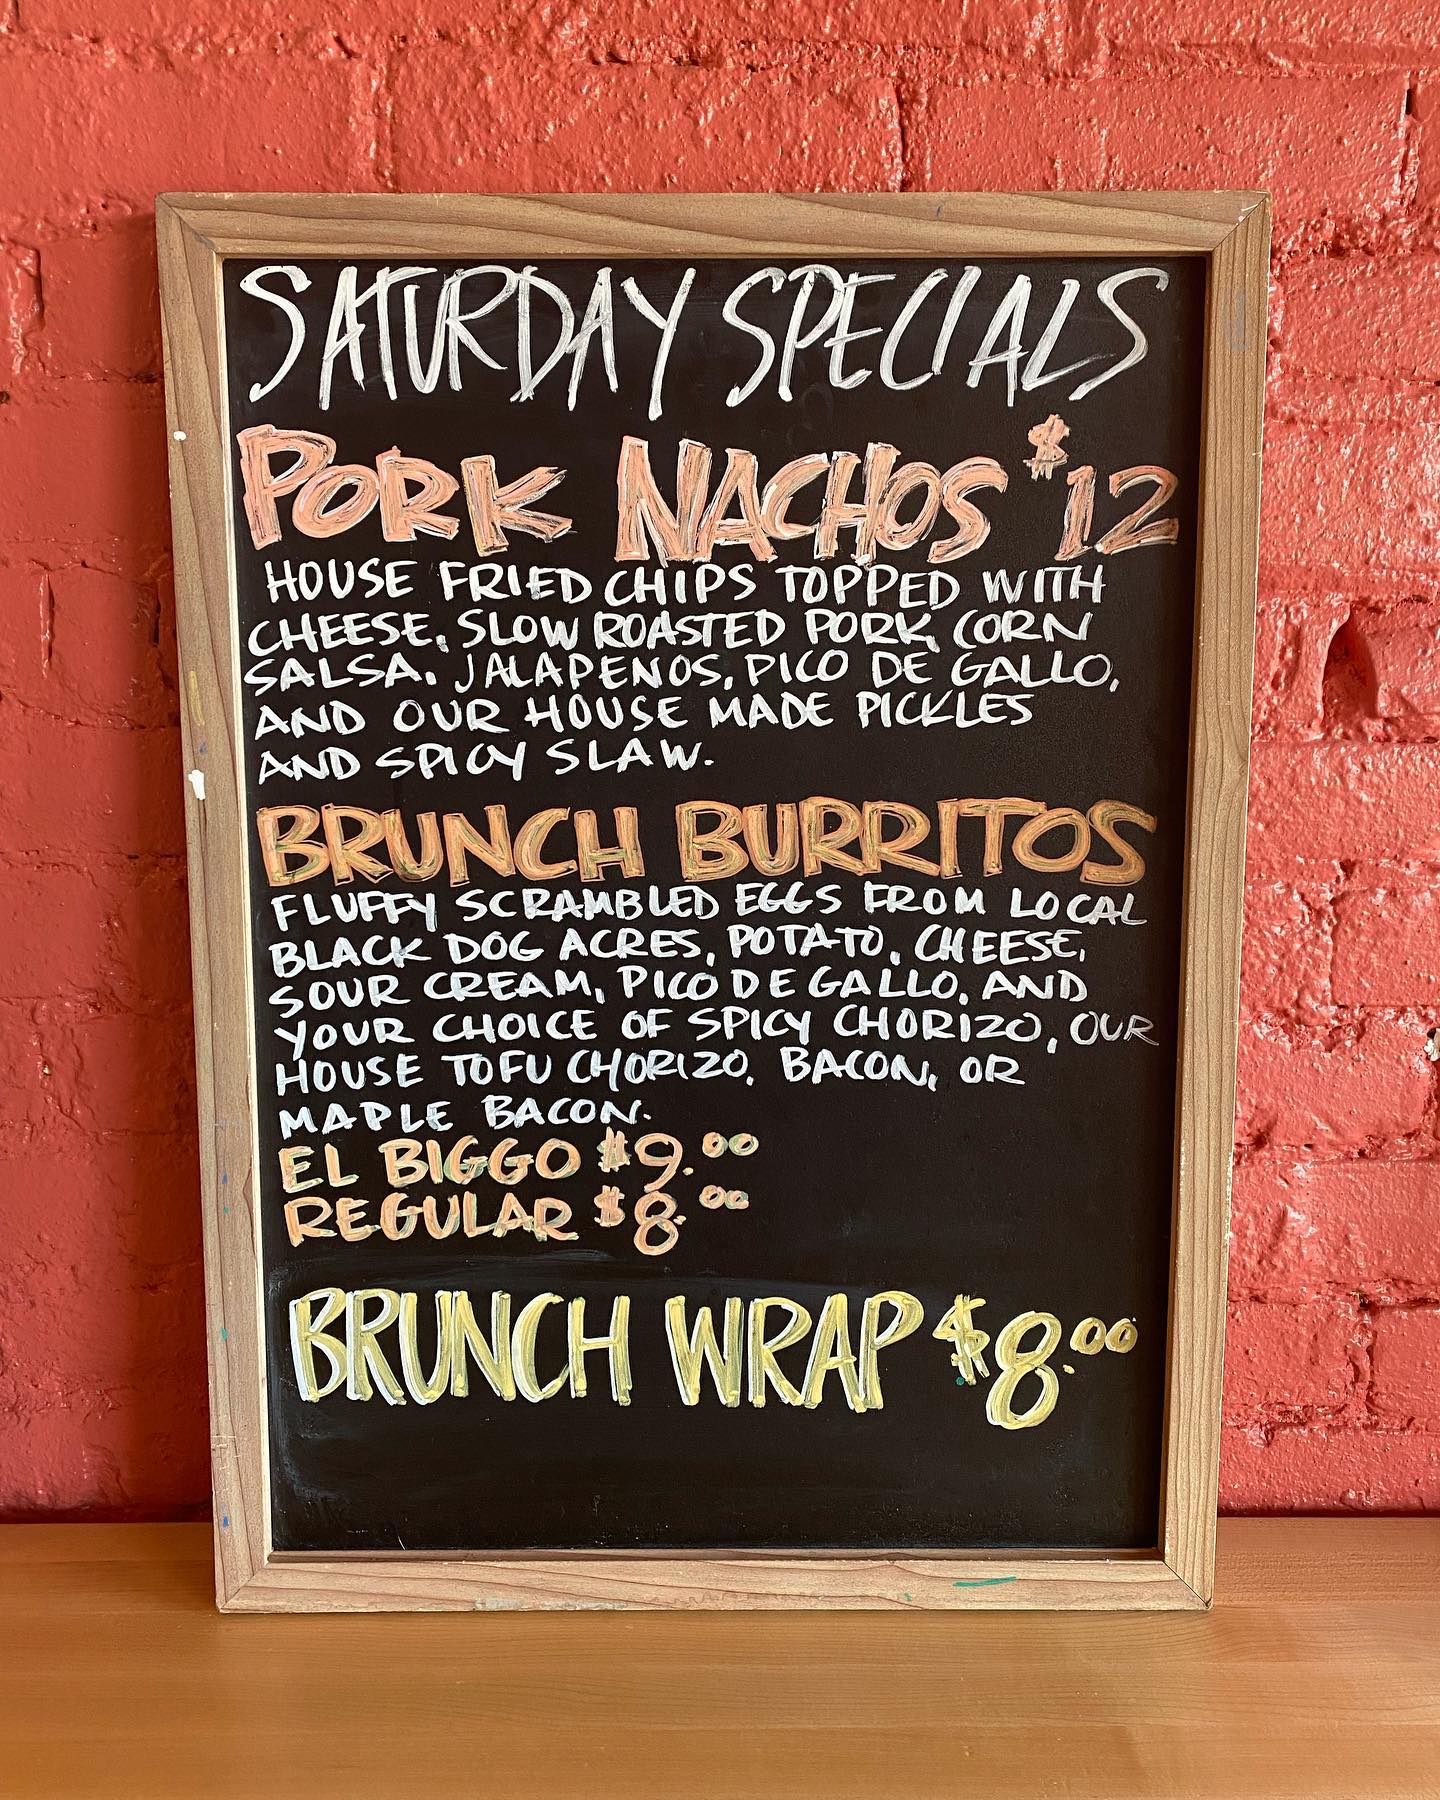 SATURDAY SPECIALS
PORK NACHOS $12
HOUSE FRIED CHIPS TOPPED WITH
CHEESE, SLOW ROASTED PORK, CORN
SALSA, JALAPENOS, PICO DE GALLO,
AND OUR HOUSE MADE PICKLES
AND SPICY SLAW.
BRUNCH BURRITOS
FLUFFY SCRAMBLED EGGS FROM LOCAL
BLACK DOG ACRES, POTATO, CHEESE,
SOUR CREAM, PICO DE GALLO, AND
YOUR CHOICE OF SPICY CHORIZO, OUR
HOUSE TOFU CHORIZO, BACON, OR
MAPLE BACON.
EL BIGGO $9.00
REGULAR $8.00
BRUNCH WRAP $8.00